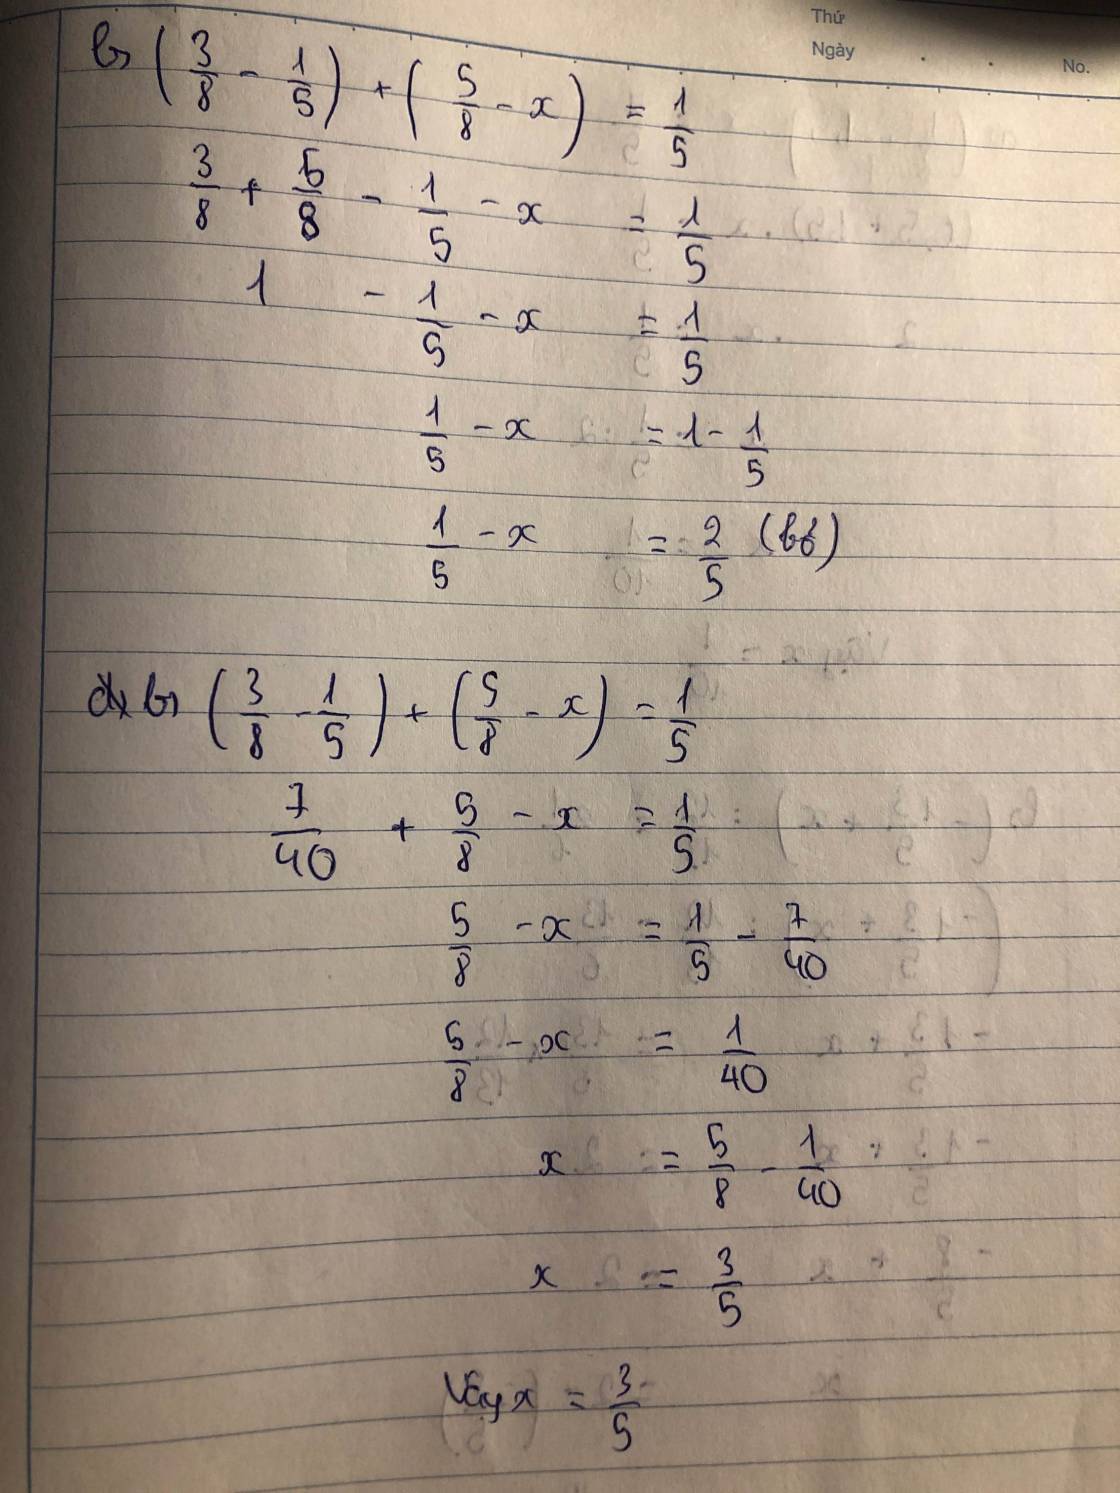 Thứ
Ngày . .
No.
b, (3/8 - 1/5) + (5/8 - x) = 1/5
3/8 + 5/8 - 1/5 - x = 1/5
1 - 1/5 - x = 1/5
1/5 - x = 1 - 1/5
1/5 - x = 2/5 (bb)
b, (3/8 - 1/5) + (5/8 - x) = 1/5
7/40 + 5/8 - x = 1/5
5/8 - x = 1/5 - 7/40
5/8 - x = 1/40
x = 5/8 - 1/40
x = 3/5
Vậy x = 3/5